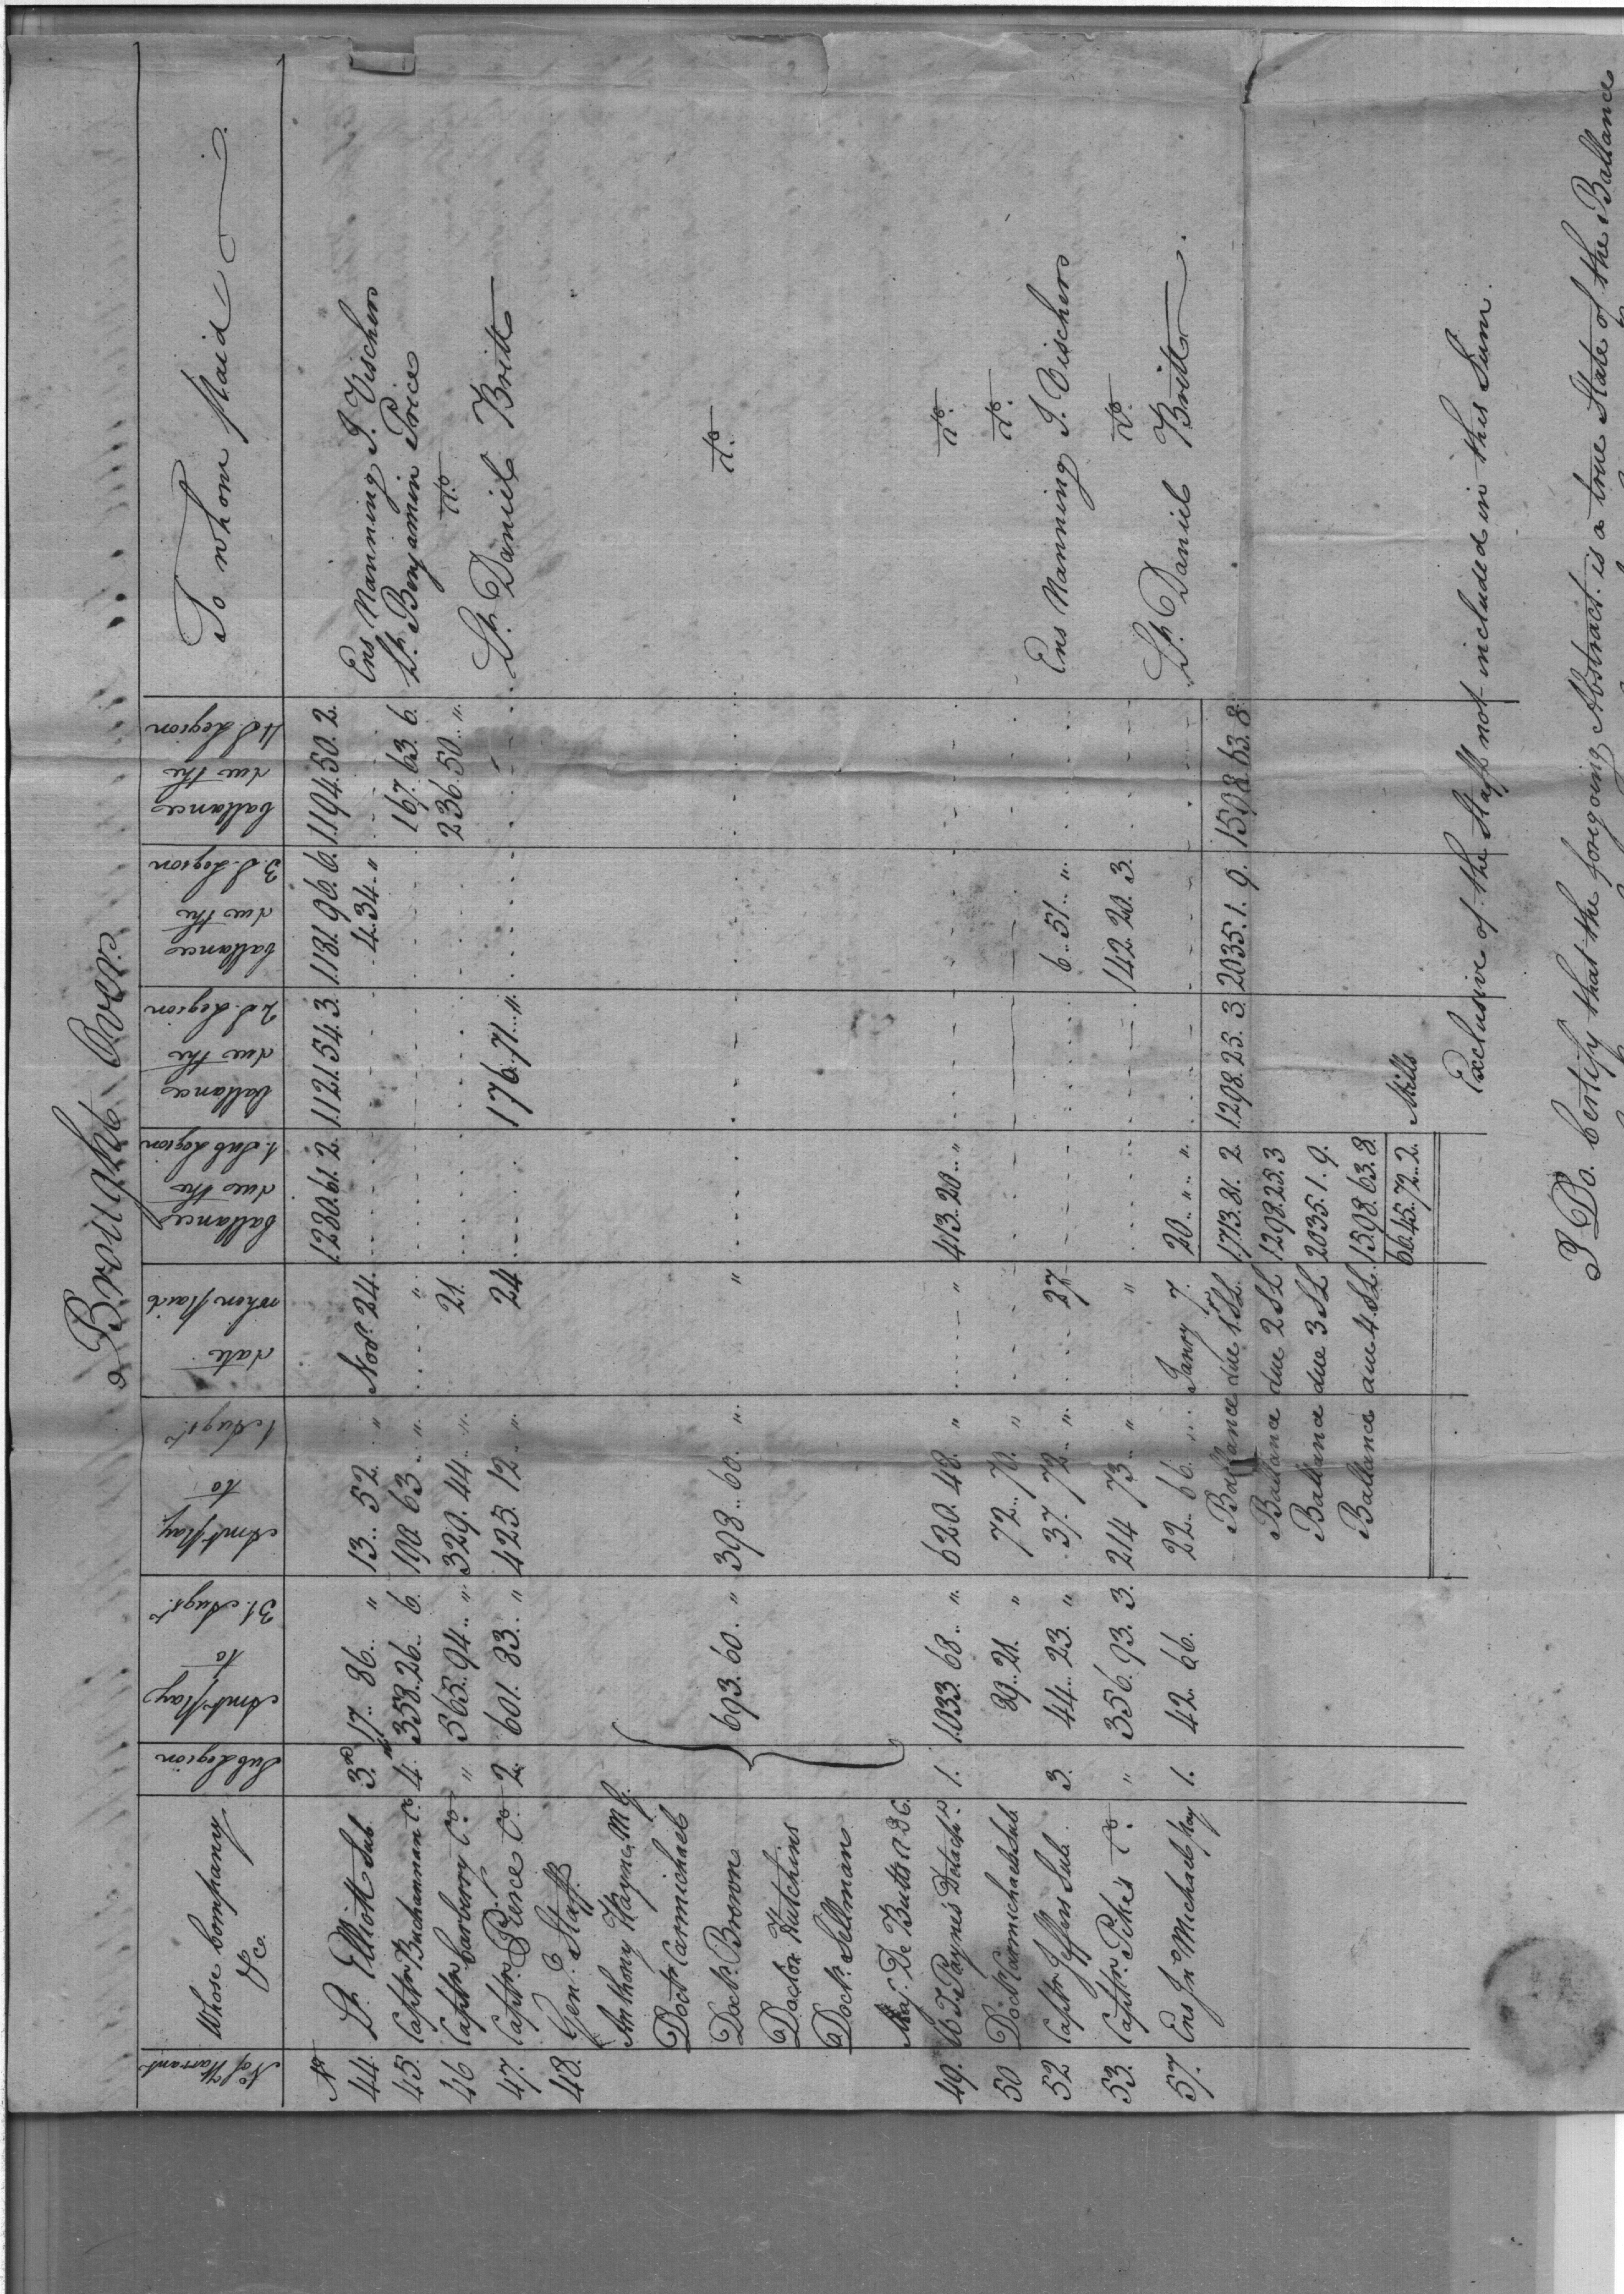 Brought Over
No. of Warrant | Whose Company &c. | Sub Legion | Amt. Pay to 31. Augst. | Amt. Pay to 1 Augst. | date when paid | ballances due the 1. Sub Legion | ballance due the 2 S. Legion | ballances due the 3. S. Legion | ballances due the 4 S. Legion | To whom paid
No | 1280. 61. 2. | 1121. 54. 3. | 1181. 96. 6. | 1194. 50. 2.
44. Lt. Elliott Sub. | 3d | 17.. 86.. " | 13.. 52.. " | Novr. 24. | 4. 34.. " | Ens Manning J. Vischers
45. Captn. Buchannan Co. | 4. | 358.. 26.. 6. | 190 63.. " | " | 167. 63. 6. | Lt. Benjamin Price
46 Captn. Carberry Co. | " | 565.. 94.. " | 329. 44.. " | 21. | 236. 50.. " | Do.
47. Captn. Pierce Co. | 2. | 601. 83.. " | 425. 12.. " | 24 | 176. 71... " | Lt. Daniel Britt
48. Genl. Staff
Anthony Wayne M. G.
Doctr. Carmichael
Doctr. Brown | 693. 60.. " | 398.. 60.. " | " | Do.
Doctor Hutchins
Doctr. Sellman
Maj. De Butts A D C.
49. W. T. Payne's Detacht. | 1. | 1033. 68.. " | 620. 48.. " | " | 413. 20.. " | Do.
50 Doctr Carmichaels Sub. | 39.. 21. " | 72.. 70. " | " | Do.
52 Captn. Jeffers Sub. | 3. | 44.. 23. " | 37. 72.. " | 27 | 6.. 51.. " | Ens Manning J. Vischers
53. Captn. Pike's Co. | " | 356. 93. 3. | 214 73.. " | " | 142. 20. 3. | Do.
57. Ens Jno. Michael pay | 1. | 42.. 66. | 22.. 66. " | Janry 7. | 20.. ".. ". | Lt. Daniel Britt.
Ballance due 1st. S.L. | 1713. 81. 2 | 1298. 25. 3. | 2035. 1. 9. | 1598. 63. 8.
Ballance due 2 S L | 1298. 25. 3
Ballance due 3 S L | 2035. 1. 9.
Ballance due 4. S.L. | 1598. 63. 8.
6645.. 72.. 2. Mills
Exclusive of the Staff not included in this Sum.
I Do. Certify that the foregoing Abstract. is a true State of the Ballance